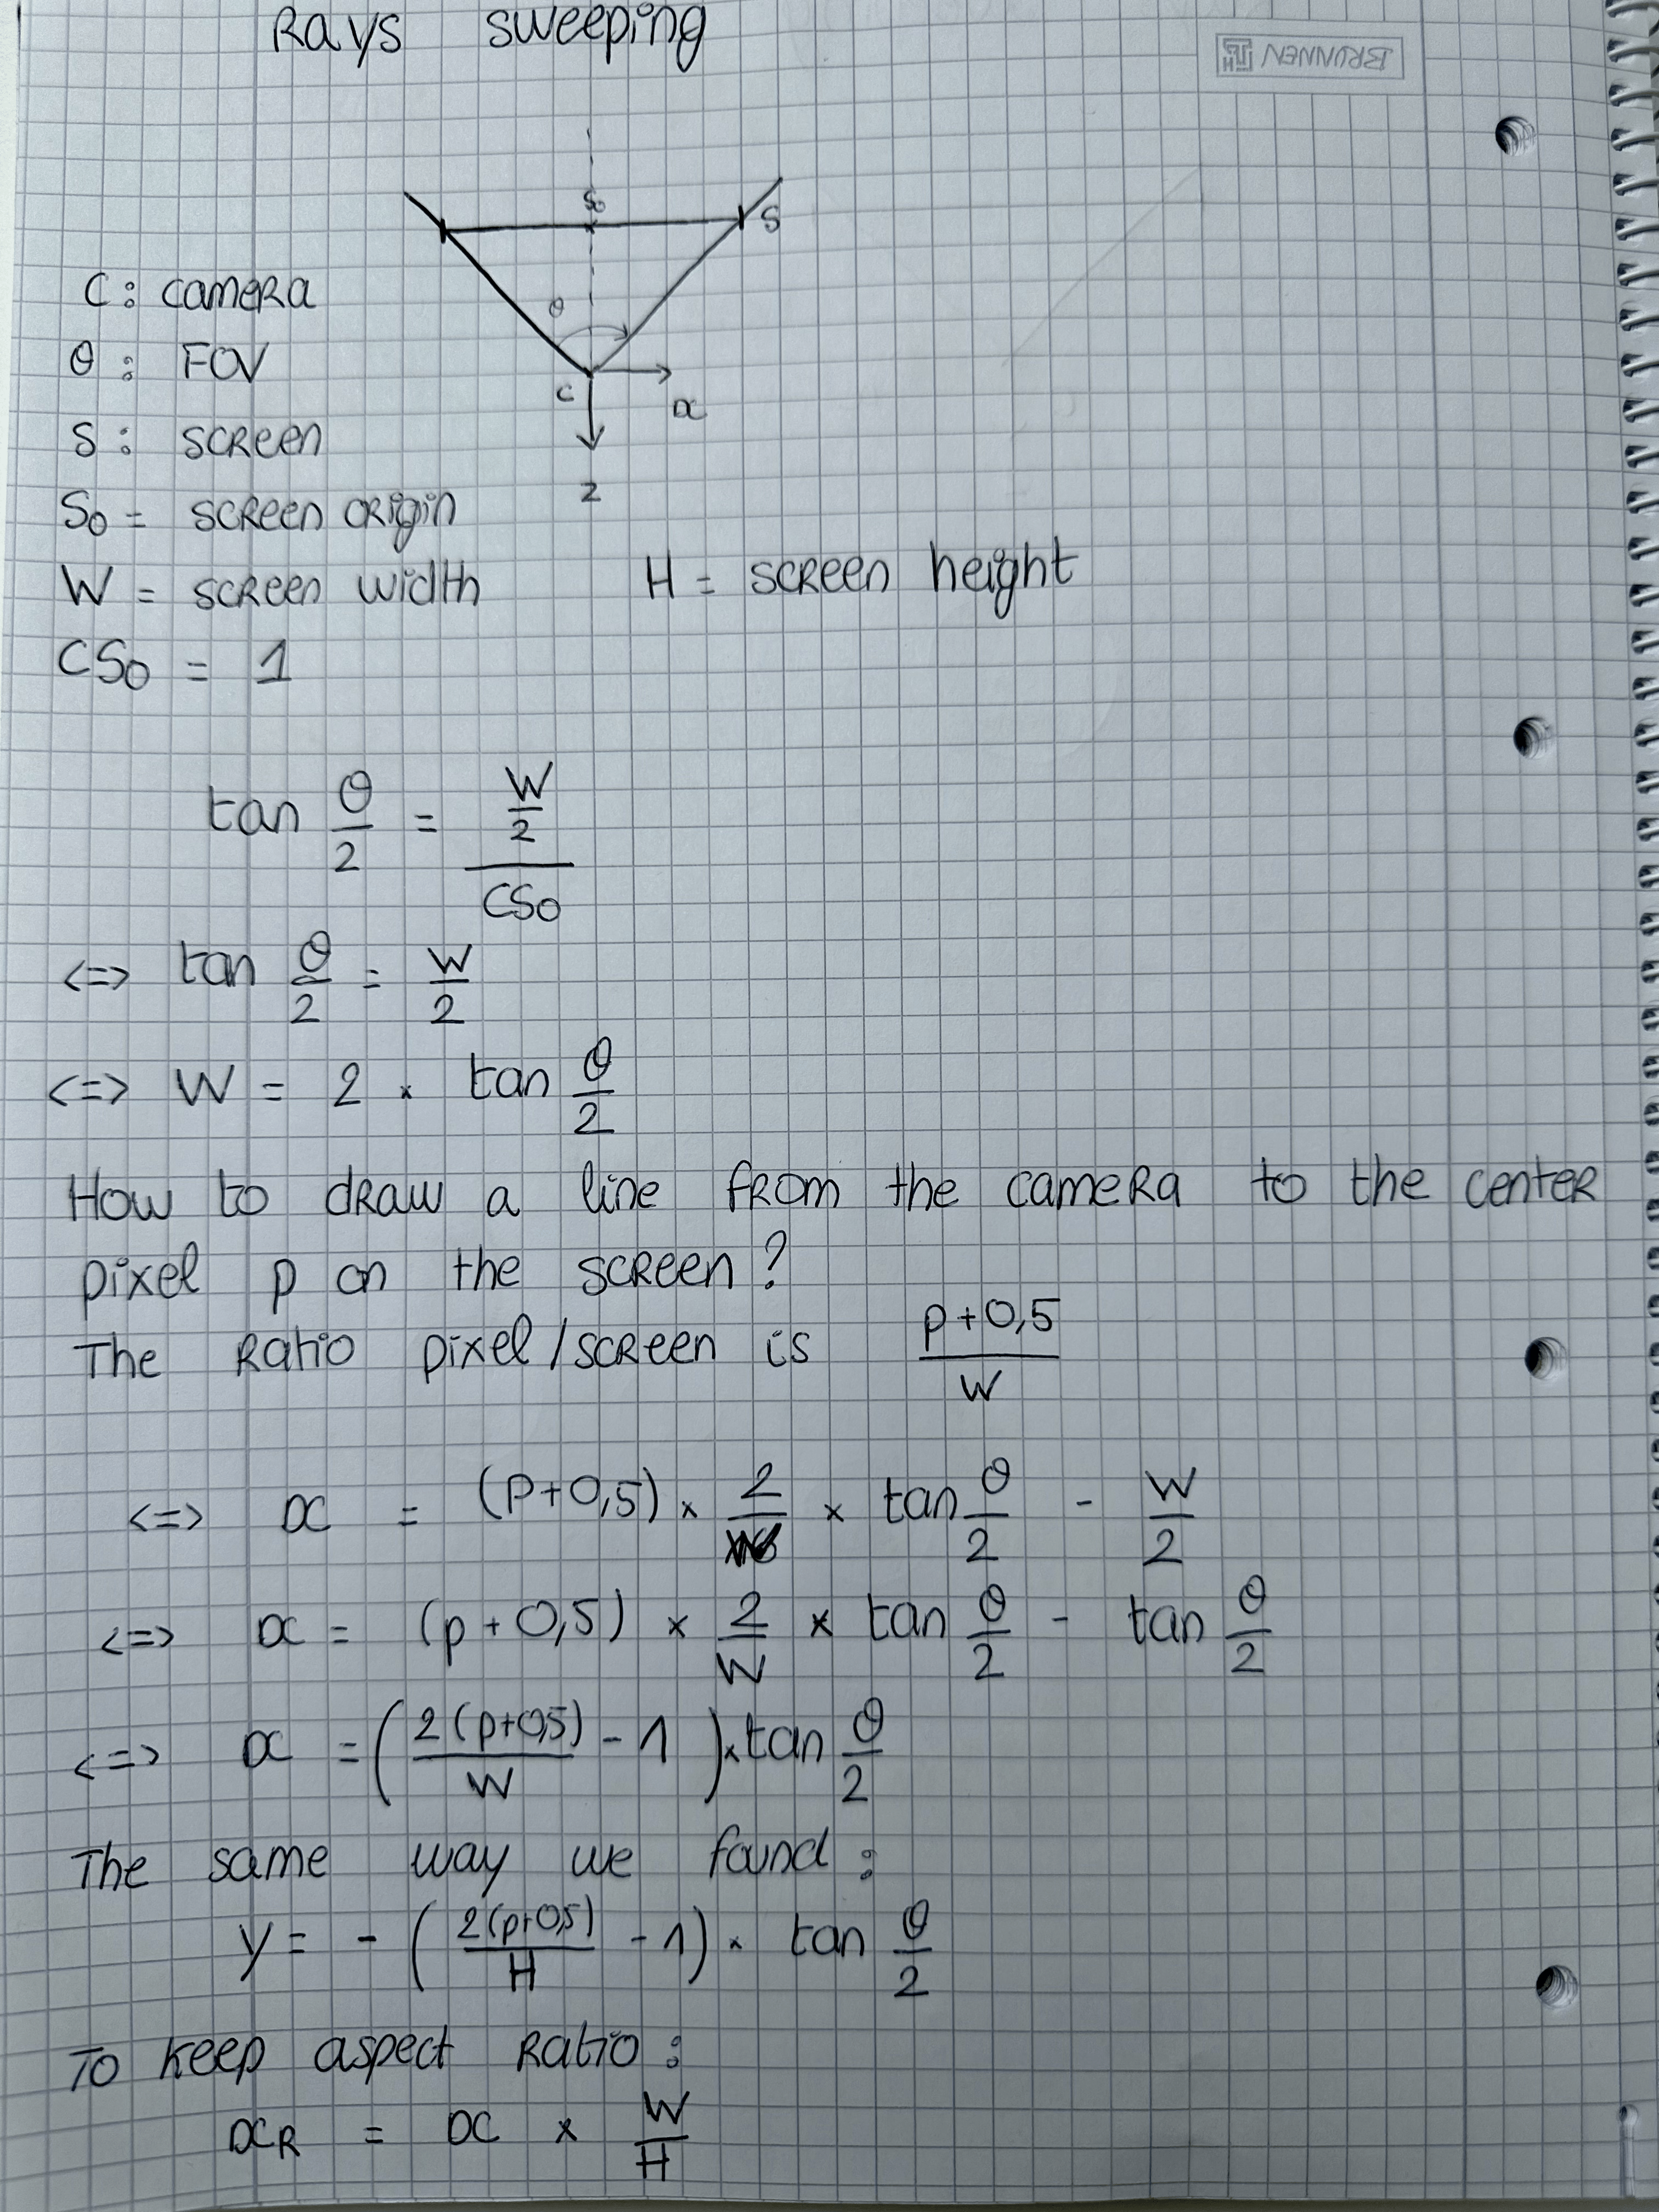 Rays sweeping
BRUNNEN
S₀
S
θ
C
x
z
C : camera
θ : FOV
S : screen
S₀ = screen origin
W = screen width H = screen height
CS₀ = 1
tan θ/2 = (W/2)/CS₀
<=> tan θ/2 = W/2
<=> W = 2 × tan θ/2
How to draw a line from the camera to the center
pixel p on the screen ?
The ratio pixel/screen is (p+0,5)/W
<=> x = (p+0,5) × 2/W × tan θ/2 - W/2
<=> x = (p+0,5) × 2/W × tan θ/2 - tan θ/2
<=> x = (2(p+0,5)/W - 1) × tan θ/2
The same way we found :
y = - (2(p+0,5)/H - 1) × tan θ/2
To keep aspect ratio :
x_R = x × W/H